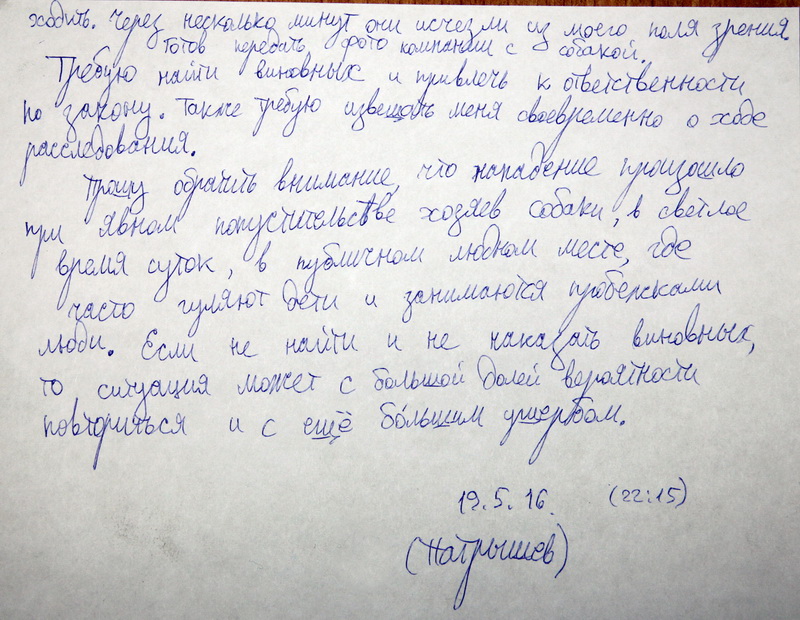 ходить. Через несколько минут они исчезли из моего поля зрения.
Готов передать фото компании с собакой.
Требую найти виновных и привлечь к ответственности
по закону. Также требую извещать меня своевременно о ходе
расследования.
Прошу обратить внимание, что нападение произошло
при явном попустительстве хозяев собаки, в светлое
время суток, в публичном людном месте, где
часто гуляют дети и занимаются пробежками
люди. Если не найти и не наказать виновных,
то ситуация может с большой долей вероятности
повториться и с ещё бо́льшим ущербом.
19.5.16. (22:15)